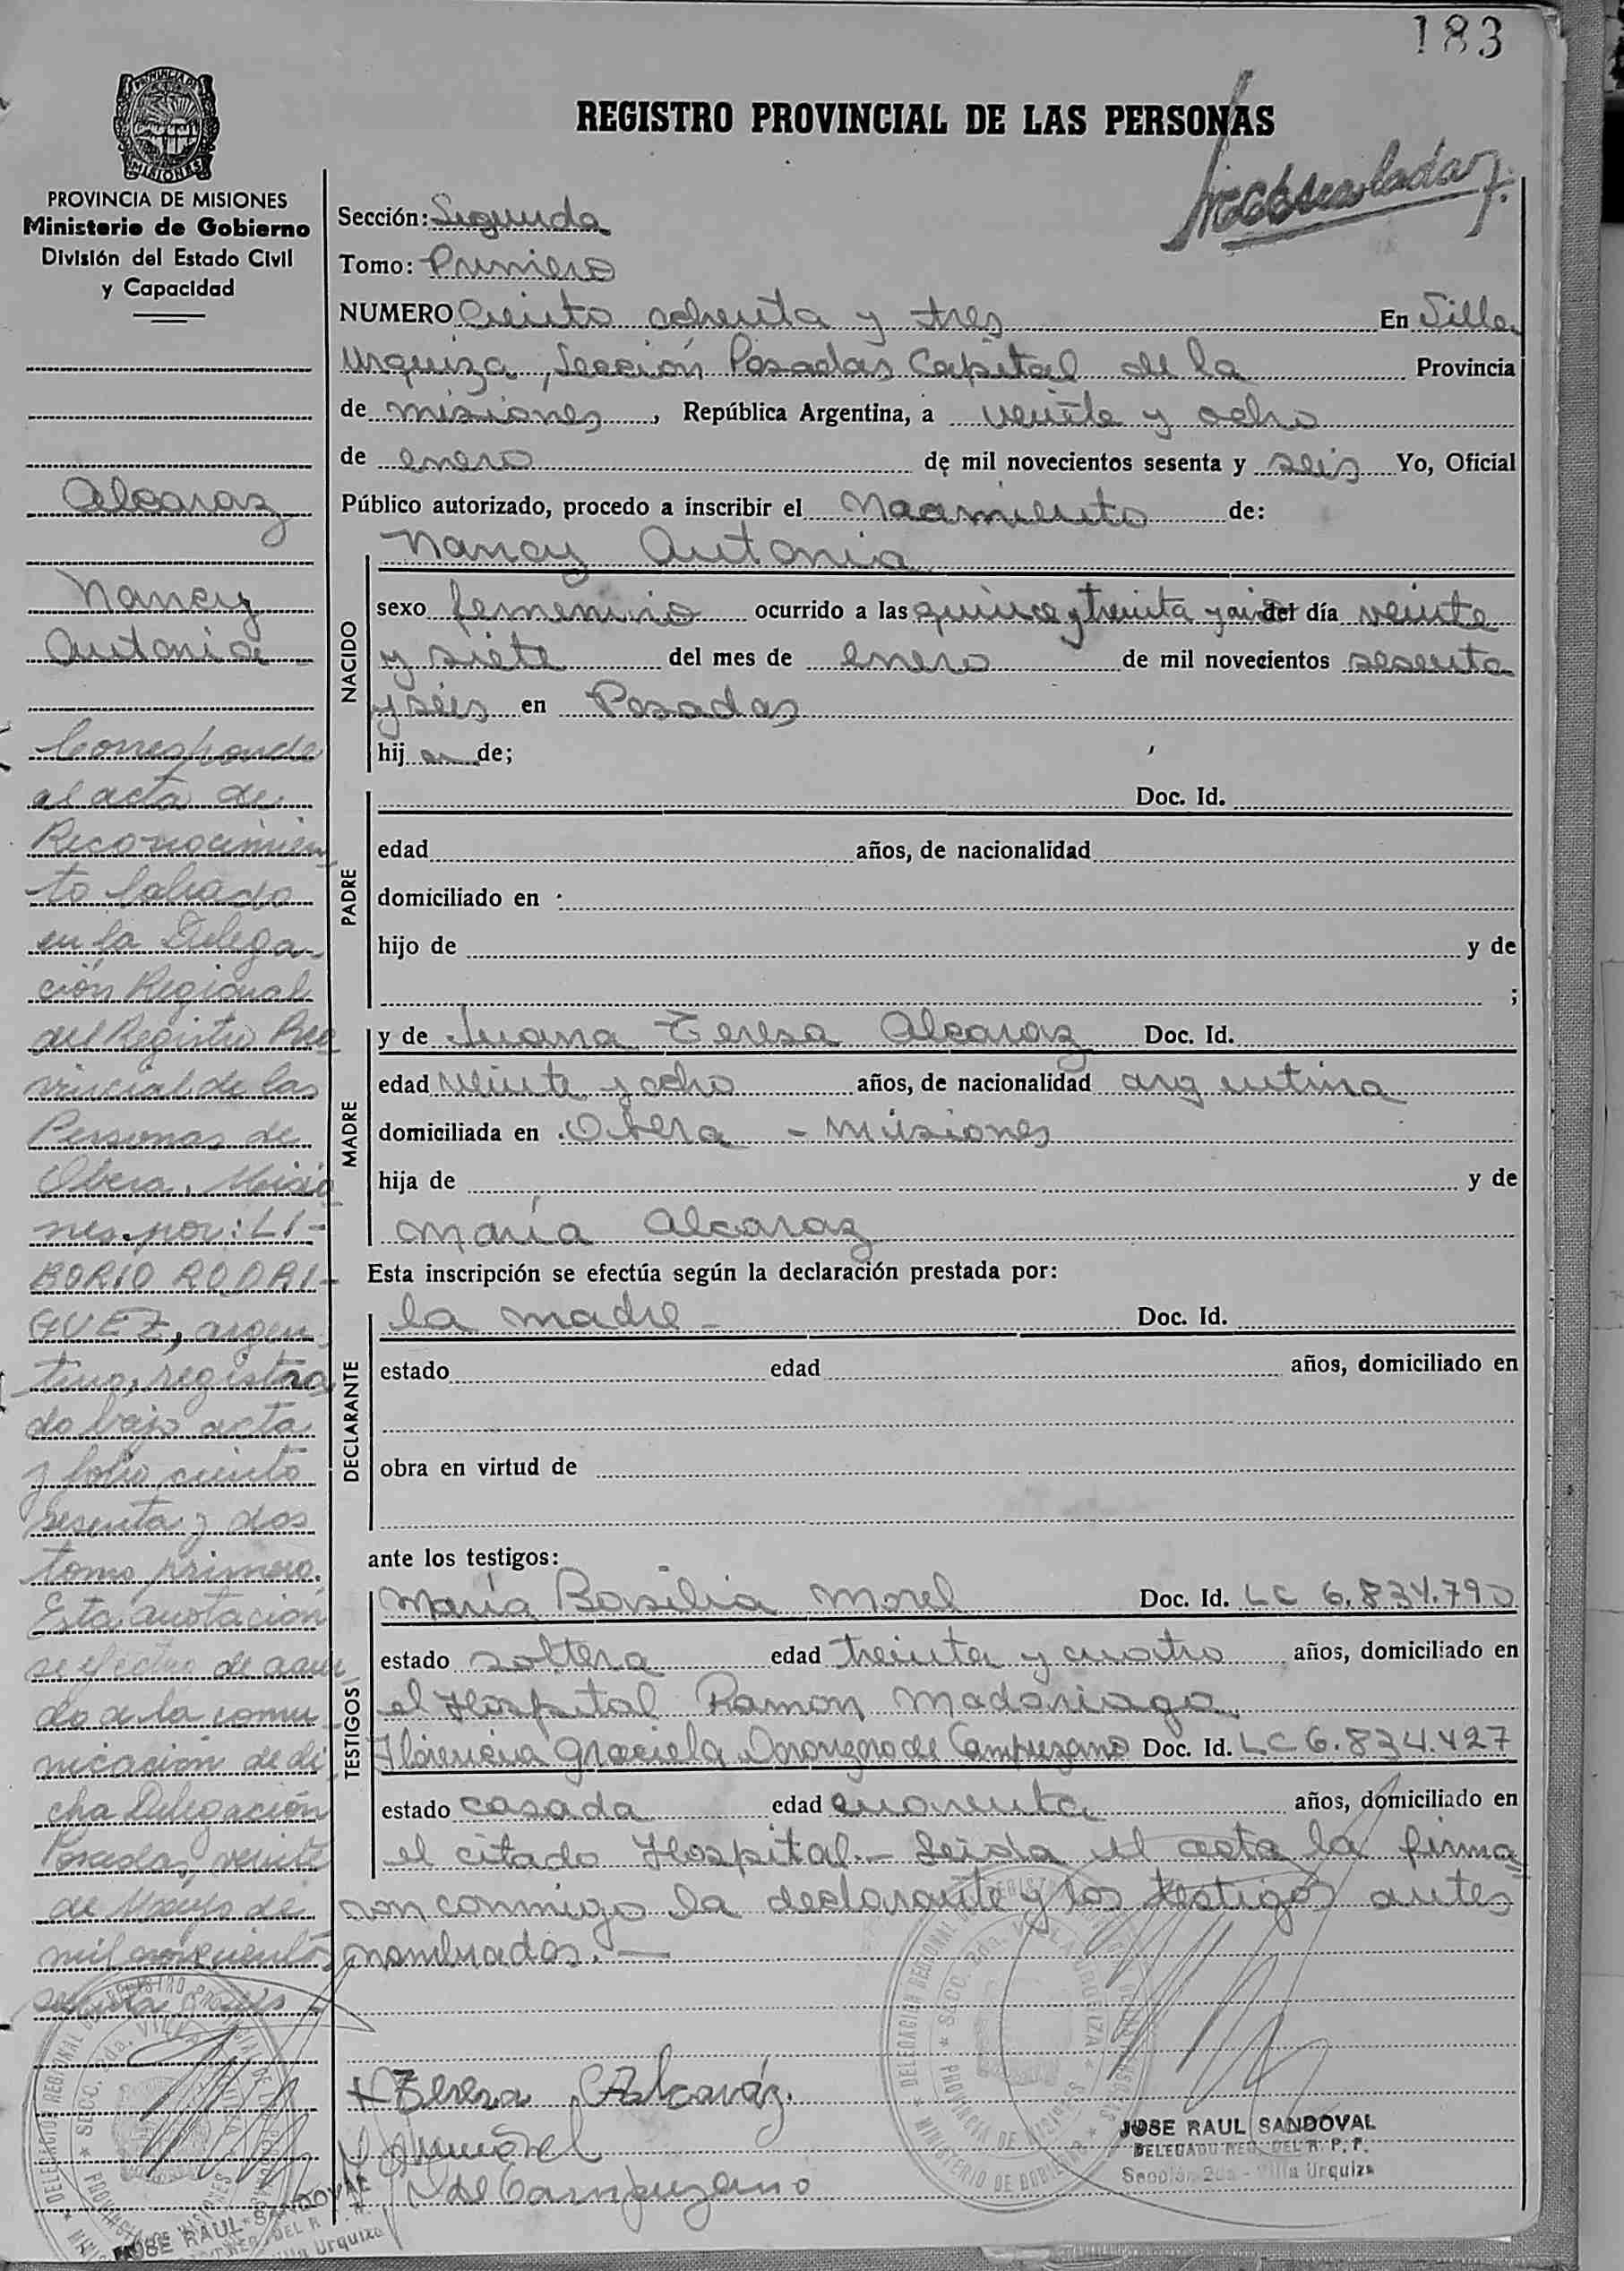 183
REGISTRO PROVINCIAL DE LAS PERSONAS
PROVINCIA DE MISIONES
Ministerio de Gobierno
División del Estado Civil
y Capacidad
Alcaraz
Nancy
Antonia
Corresponde
al acta de
Reconocimien
to labrado
en la Delega-
ción Regional
del Registro Pro
vincial de las
Personas de
Obera, Misio
nes, por: LI-
BORIO RODRI-
GUEZ, argen-
tino, registra
do bajo acta
y folio ciento
sesenta y dos
tomo primero.
Esta anotación
se efectua de acuer
do a la comu
nicación de di
cha Delegación
Posadas, veinte
de Mayo de
mil novecientos
Sección: Segunda
Tomo: Primero
NUMERO Ciento ochenta y tres En Villa
Urquiza, Sección Posadas Capital de la Provincia
de misiones, República Argentina, a veinte y ocho
de enero de mil novecientos sesenta y seis Yo, Oficial
Público autorizado, procedo a inscribir el Nacimiento de:
NACIDO
Nancy Antonia
sexo femenino ocurrido a las quince y treinta y del día veinte
y siete del mes de enero de mil novecientos sesenta
y seis en Posadas
hija de;
PADRE
Doc. Id.
edad años, de nacionalidad
domiciliado en
hijo de y de
;
MADRE
y de Juana Teresa Alcaraz Doc. Id.
edad veinte y ocho años, de nacionalidad argentina
domiciliada en Obera - Misiones
hija de y de
María Alcaraz
Esta inscripción se efectúa según la declaración prestada por:
DECLARANTE
la madre - Doc. Id.
estado edad años, domiciliado en
obra en virtud de
ante los testigos:
TESTIGOS
María Basilia Morel Doc. Id. LC 6.834.790
estado soltera edad treinta y cuatro años, domiciliado en
el Hospital Ramon Madariaga
Florencia Graciela de Campuzano Doc. Id. LC 6.834.427
estado casada edad cuarenta años, domiciliado en
el citado Hospital.- Leida el acta la firma
ron conmigo la declarante y los testigos antes
nombrados.-
Teresa Alcaráz.
de Campuzano
JOSE RAUL SANDOVAL
DELEGADO REG. DEL R. P. P.
Sección 2da - Villa Urquiza
JOSE RAUL SANDOVAL
Villa Urquiza